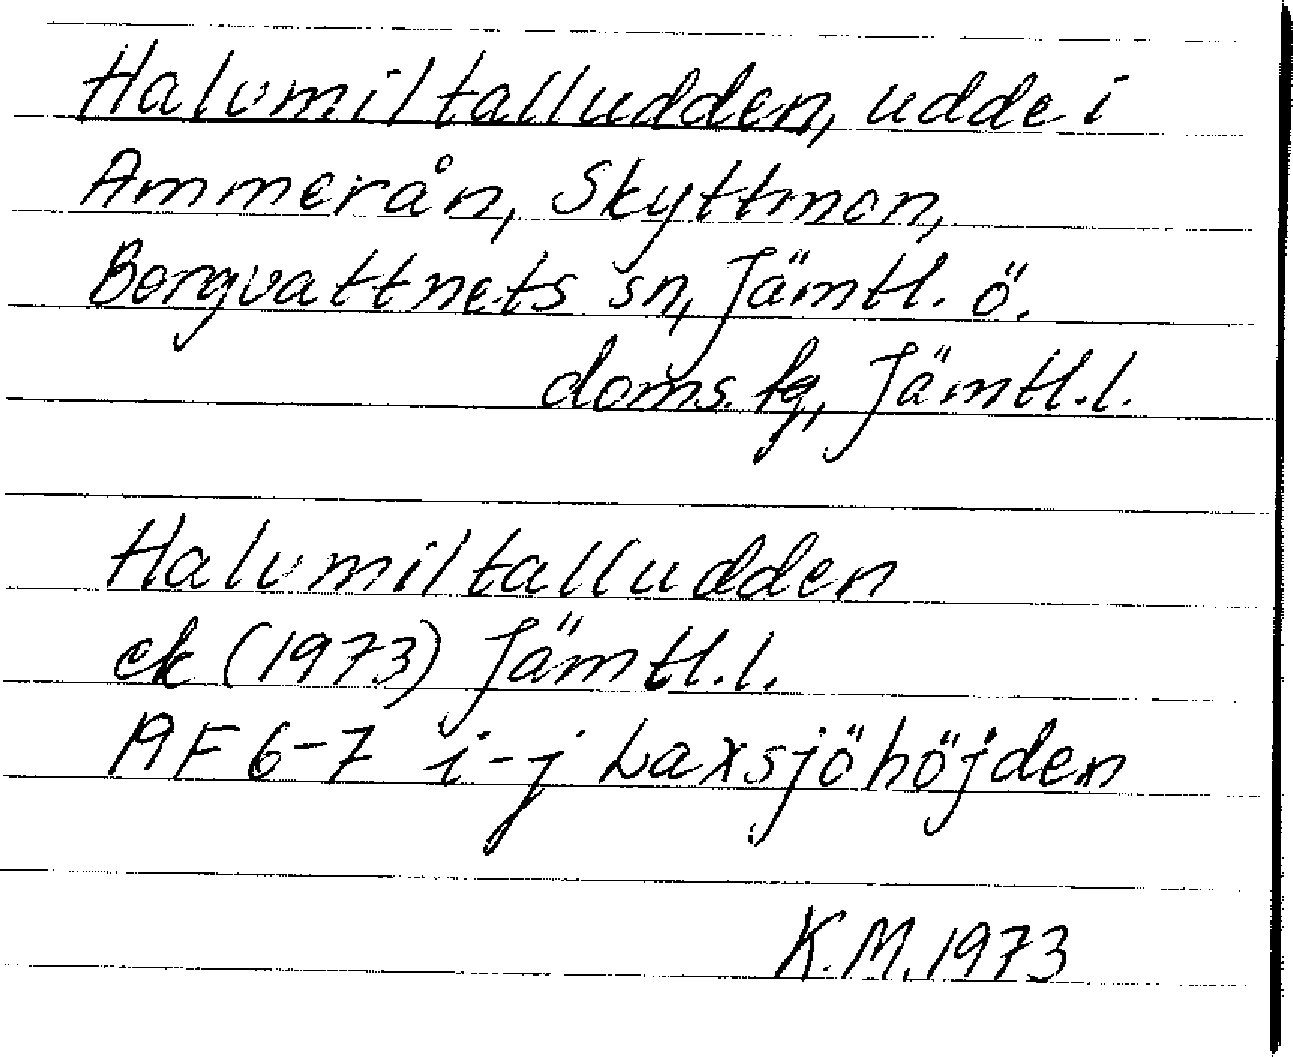 Halvmiltalludden, udde i
Ammerån, Skyttmon,
Borgvattnets sn, Jämtl. ö.
doms. fg, Jämtl. l.
Halvmiltalludden
ek (1973) Jämtl. l.
19F 6-7 i-j Laxsjöhöjden
K.M. 1973